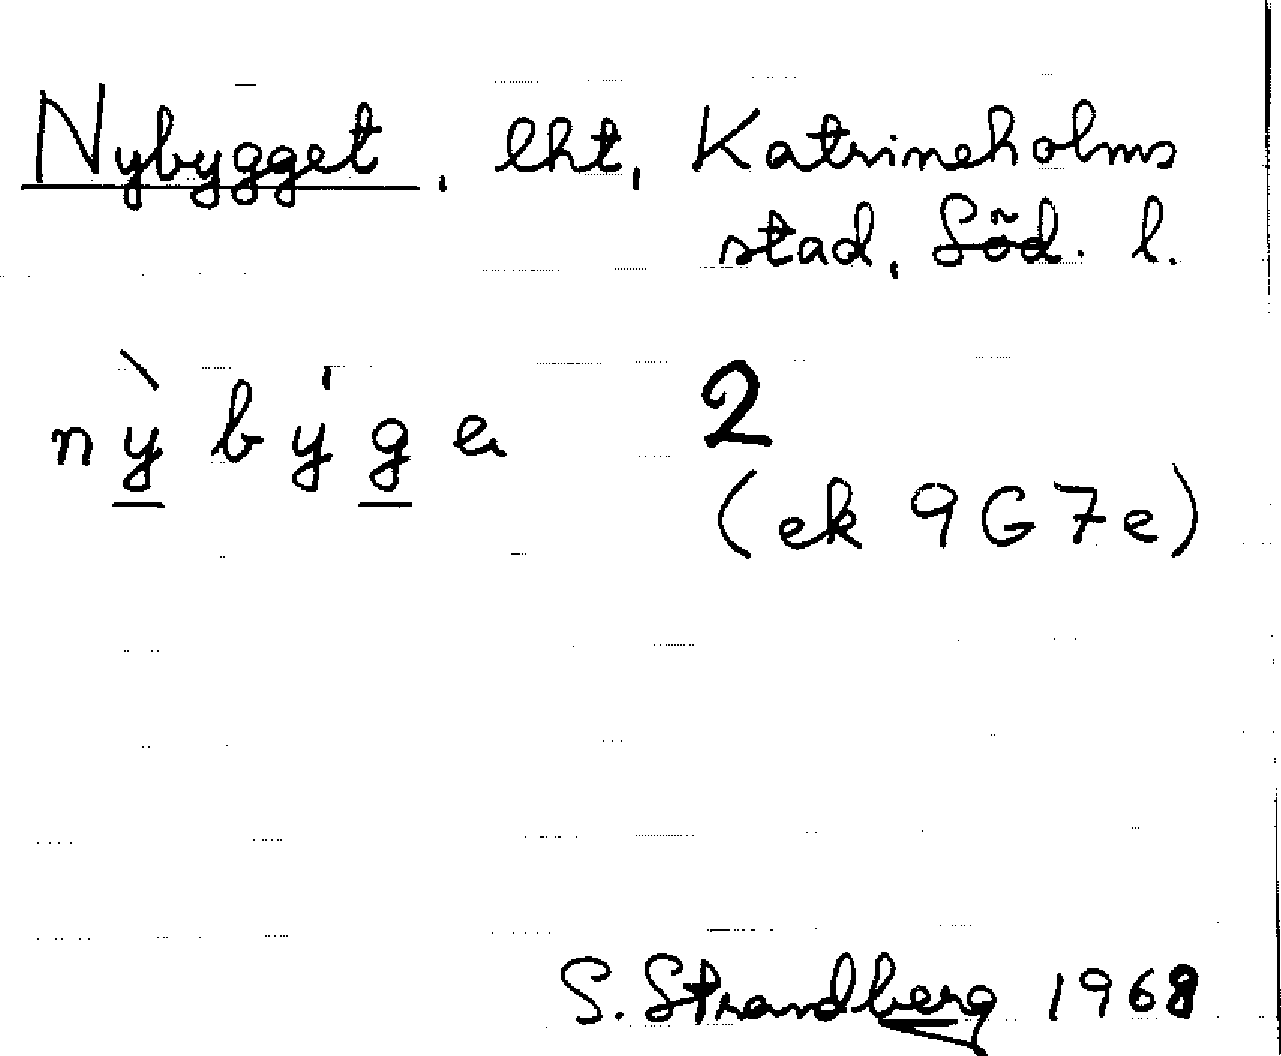 Nybygget, lht, Katrineholms
stad, Söd. l.
nỳbýge 2
(ek 9G7e)
S. Strandberg 1968